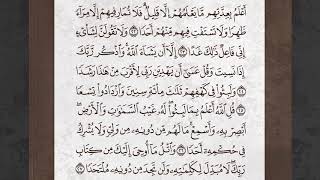 أَعْلَمُ بِعِدَّتِهِم مَّا يَعْلَمُهُمْ إِلَّا قَلِيلٌ فَلَا تُمَارِ فِيهِمْ إِلَّا مِرَآءً
ظَٰهِرًا وَلَا تَسْتَفْتِ فِيهِم مِّنْهُمْ أَحَدًا ٢٢ وَلَا تَقُولَنَّ لِشَا۟يْءٍ
إِنِّي فَاعِلٌ ذَٰلِكَ غَدًا ٢٣ إِلَّا أَن يَشَآءَ ٱللَّهُ وَٱذْكُر رَّبَّكَ
إِذَا نَسِيتَ وَقُلْ عَسَىٰٓ أَن يَهْدِيَنِ رَبِّي لِأَقْرَبَ مِنْ هَٰذَا رَشَدًا
٢٤ وَلَبِثُوا۟ فِي كَهْفِهِمْ ثَلَٰثَ مِا۟ئَةٍ سِنِينَ وَٱزْدَادُوا۟ تِسْعًا
٢٥ قُلِ ٱللَّهُ أَعْلَمُ بِمَا لَبِثُوا۟ لَهُۥ غَيْبُ ٱلسَّمَٰوَٰتِ وَٱلْأَرْضِ
أَبْصِرْ بِهِۦ وَأَسْمِعْ مَا لَهُم مِّن دُونِهِۦ مِن وَلِيٍّ وَلَا يُشْرِكُ
فِي حُكْمِهِۦٓ أَحَدًا ٢٦ وَٱتْلُ مَآ أُوحِيَ إِلَيْكَ مِن كِتَابِ
رَبِّكَ لَا مُبَدِّلَ لِكَلِمَٰتِهِۦ وَلَن تَجِدَ مِن دُونِهِۦ مُلْتَحَدًا ٢٧